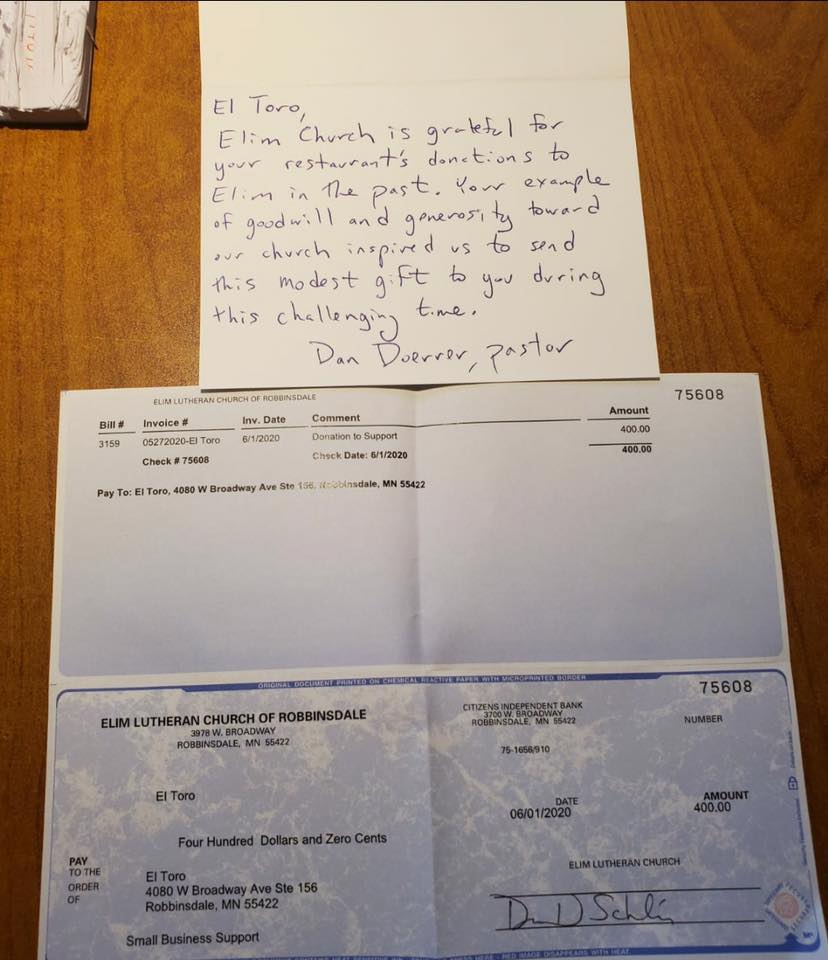 El Toro,
Elim Church is grateful for
your restaurant's donations to
Elim in the past. Your example
of goodwill and generosity toward
our church inspired us to send
this modest gift to you during
this challenging time.
Dan Doerrer, pastor
ELIM LUTHERAN CHURCH OF ROBBINSDALE
75608
Bill # Invoice # Inv. Date Comment Amount
3159 05272020-El Toro 6/1/2020 Donation to Support 400.00
Check # 75608 Check Date: 6/1/2020 400.00
Pay To: El Toro, 4080 W Broadway Ave Ste 156, Robbinsdale, MN 55422
ORIGINAL DOCUMENT PRINTED ON CHEMICAL REACTIVE PAPER WITH MICROPRINTED BORDER
75608
ELIM LUTHERAN CHURCH OF ROBBINSDALE
3978 W. BROADWAY
ROBBINSDALE, MN 55422
CITIZENS INDEPENDENT BANK
3700 W. BROADWAY
ROBBINSDALE, MN 55422
NUMBER
75-1656/910
El Toro
DATE
06/01/2020
AMOUNT
400.00
Four Hundred Dollars and Zero Cents
PAY
TO THE
ORDER
OF
El Toro
4080 W Broadway Ave Ste 156
Robbinsdale, MN 55422
ELIM LUTHERAN CHURCH
Small Business Support
RED IMAGE DISAPPEARS WITH HEAT